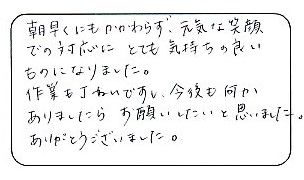 朝早くにもかかわらず、元気な笑顔
での対応に とても気持ちの良い
ものになりました。
作業も丁ねいですし、今後も何か
ありましたら お願いしたいと思いました。
ありがとうございました。